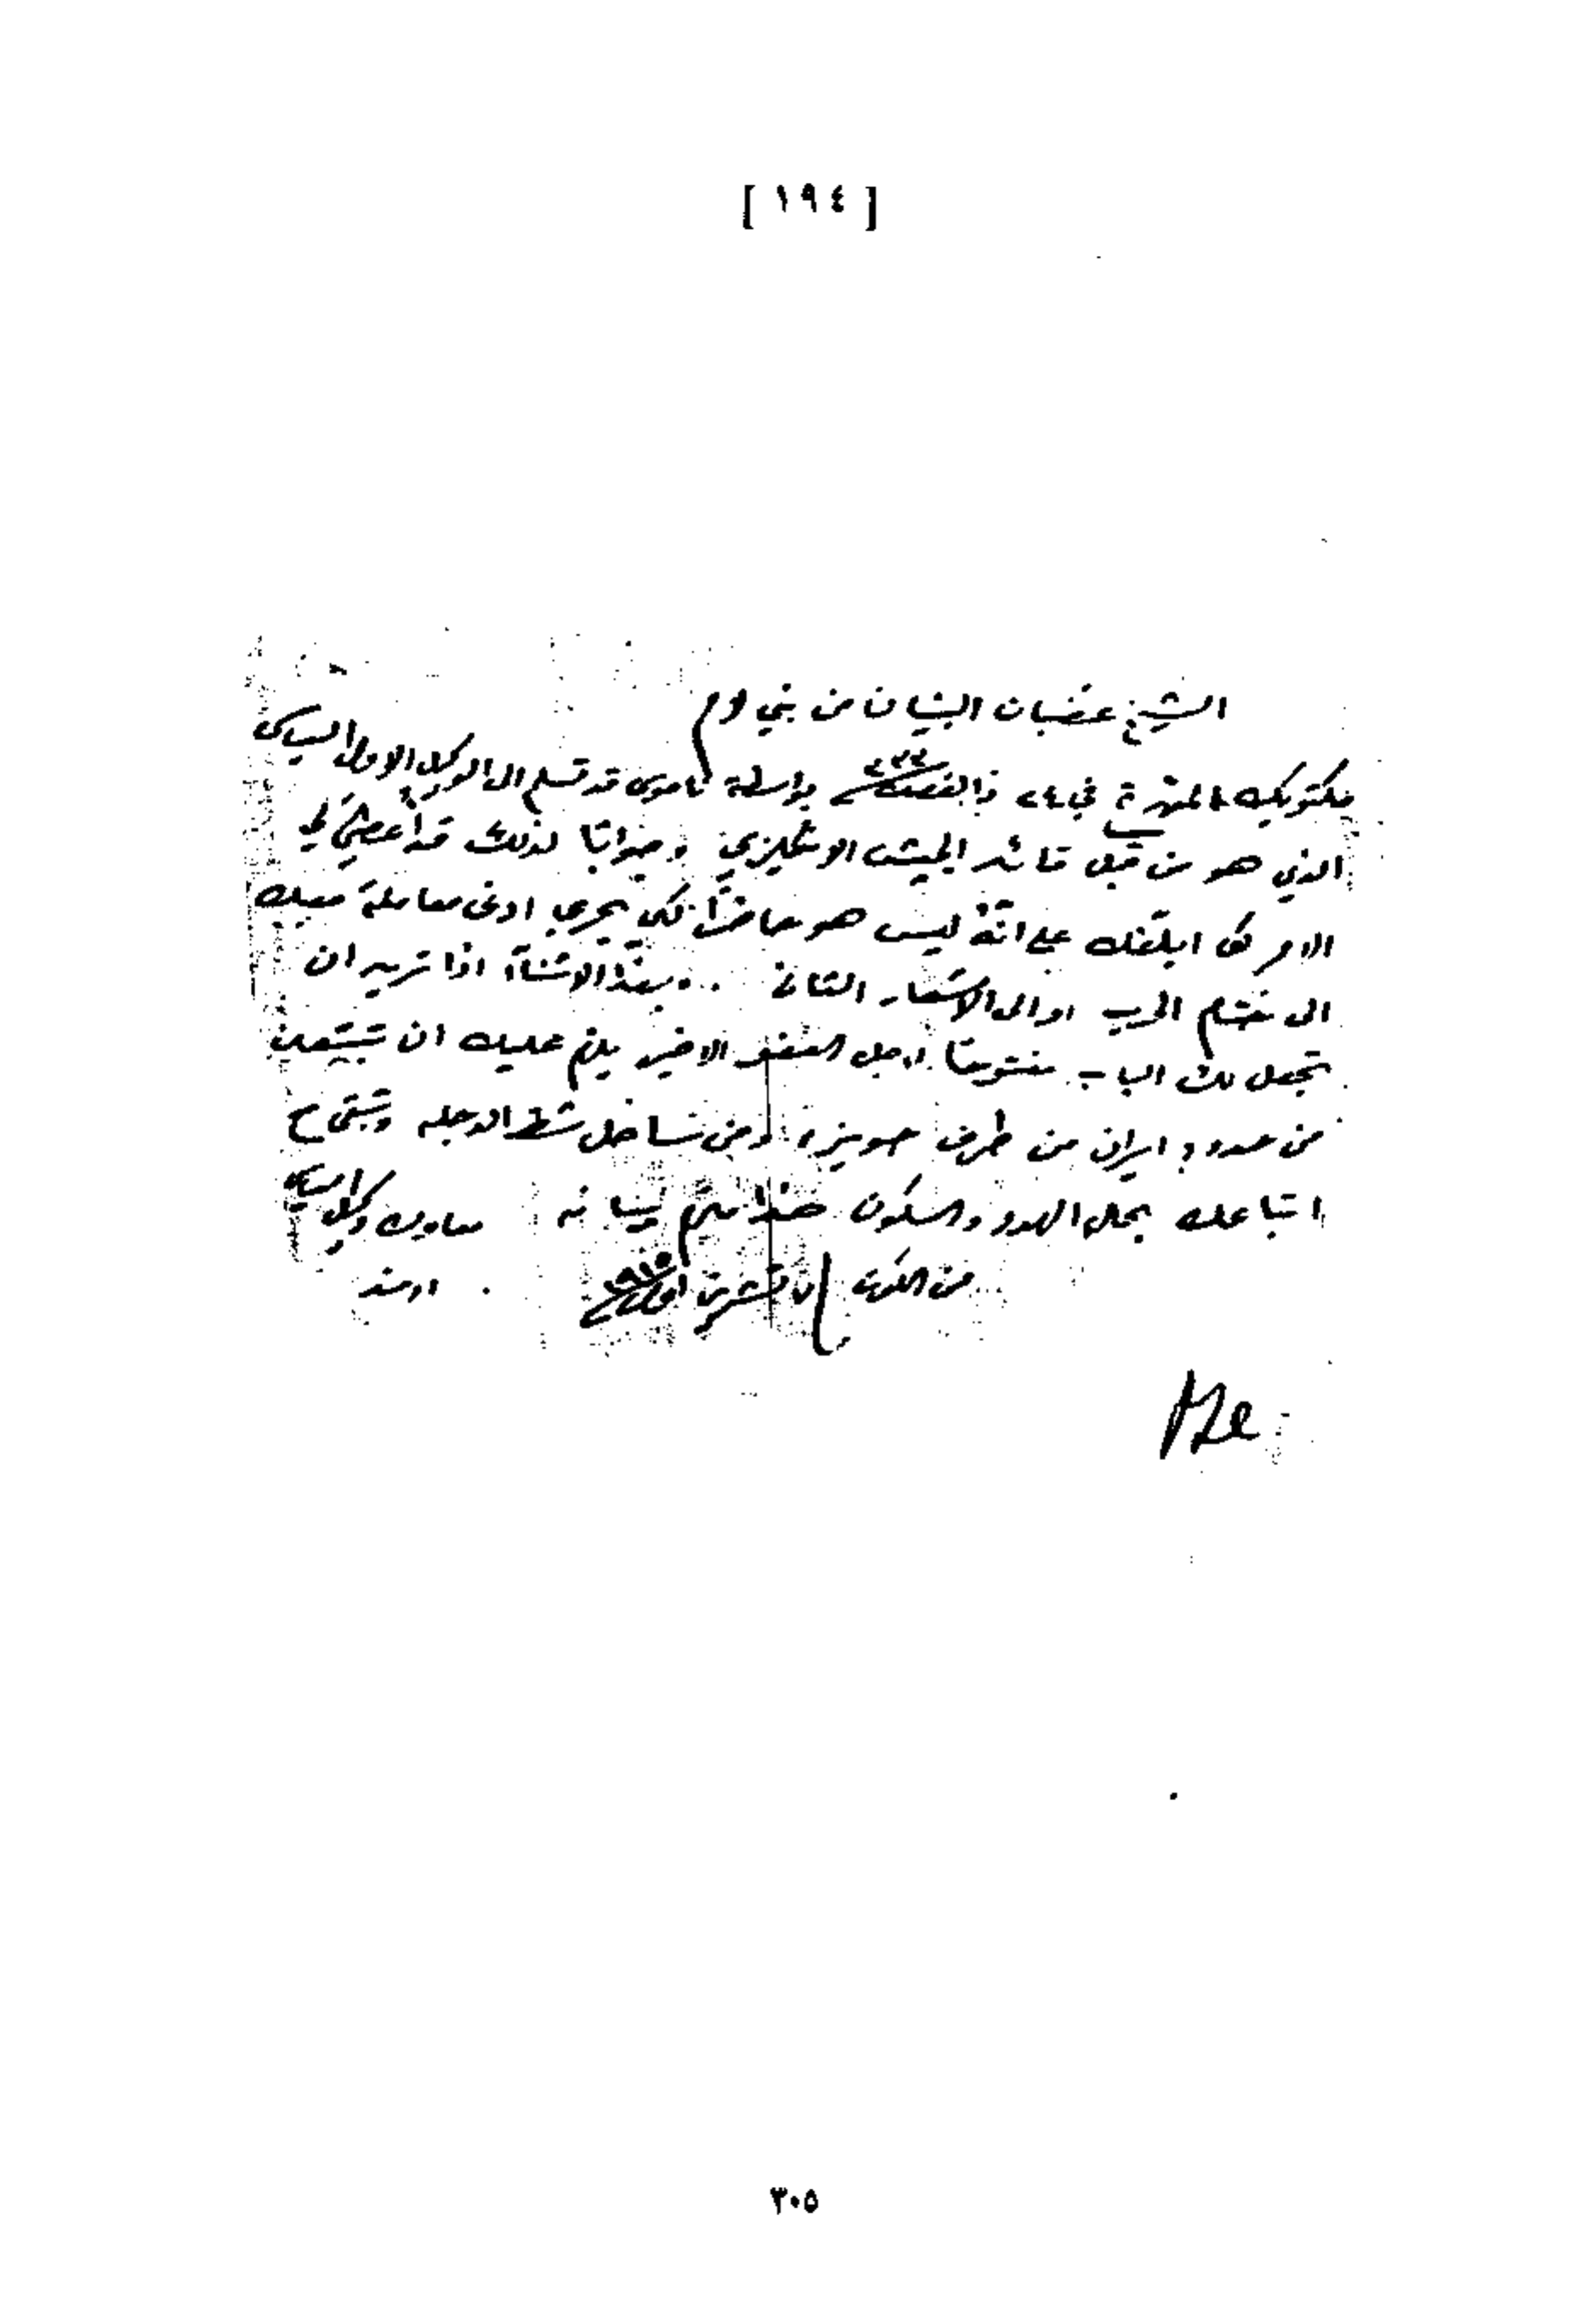 [ ١٩٤ ]
الشيخ غضبان البنيان من بني لام
مكتوبك المؤرخ في ٢٤ ذالقعدة بواسطة قد تسلم الى الوكيل الاول السياسي
الذي هو من قبل قائد الجيش الانكليزي وجوابًا لذلك قد أعطى لي
الامر لكي ابلغك على انّه ليس هو حاضرًا لكي يجري ادنى معاملة معك
الى ختام الحرب او الى الثاني .. وبهذا الاثناء اذا تريد ان
تجعل لك الباب مفتوحًا لاجل العفو الاخير يلزم عليك ان تبتعد
من حدود ايران من طرف حويزه ومن ساحل شط الدجله وتبقى مع
اتباعك بحال الهدوء والسكون هذا ما لزم بيانه معاون وكيل
من الكوت تشرين اول
٣٠٥